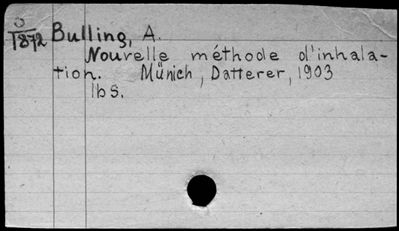 O
1872 Bulling, A.
Nouvelle méthode d'inhala-
tion. Münich, Datterer, 1903
16 S.